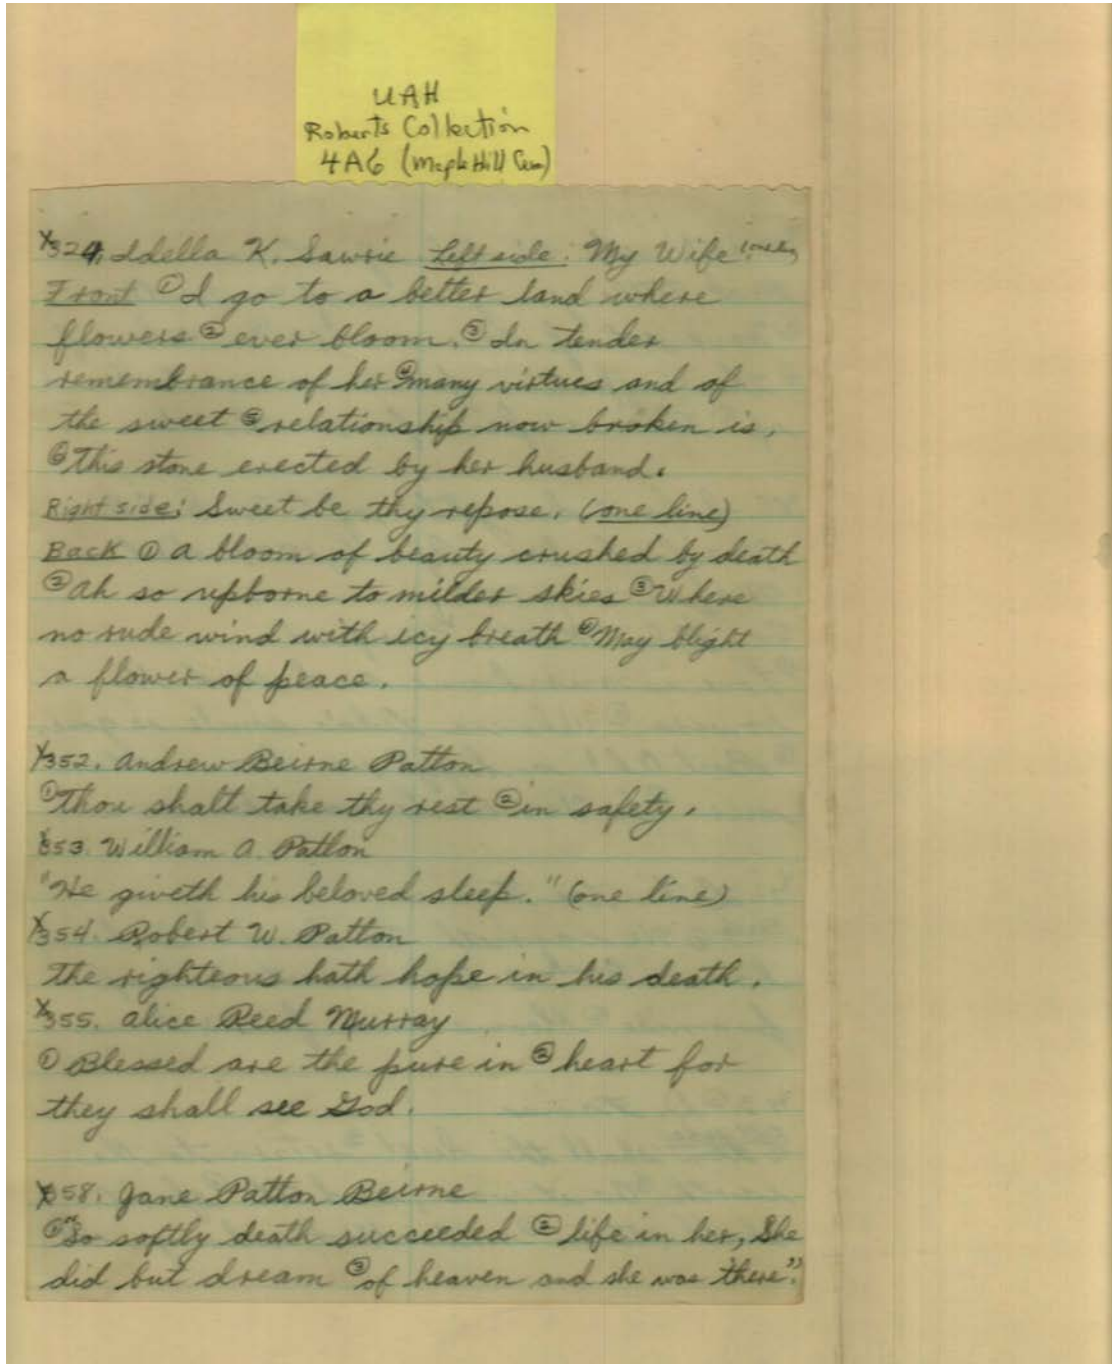 UAH
Roberts Collection
4A6 (Maple Hill Cem)
X324. Idella K. Sawrie Left side: My Wife.
Front ① I go to a better land where
flowers ② ever bloom. ③ In tender
remembrance of her ④ many virtues and of
the sweet ⑤ relationship now broken is,
⑥ This stone erected by her husband.
Right side: Sweet be thy repose. (one line)
Back ① A bloom of beauty crushed by death
② Ah so upborne to milder skies ③ Where
no rude wind with icy breath ④ May blight
a flower of peace.
X352. Andrew Beirne Patton
① Thou shalt take thy rest ② in safety.
X353. William A. Patton
"He giveth his beloved sleep." (one line)
X354. Robert W. Patton
The righteous hath hope in his death.
X355. Alice Reed Murray
① Blessed are the pure in ② heart for
they shall see God.
X358. Jane Patton Beirne
① "So softly death succeeded ② life in her, She
did but dream ③ of heaven and she was there".